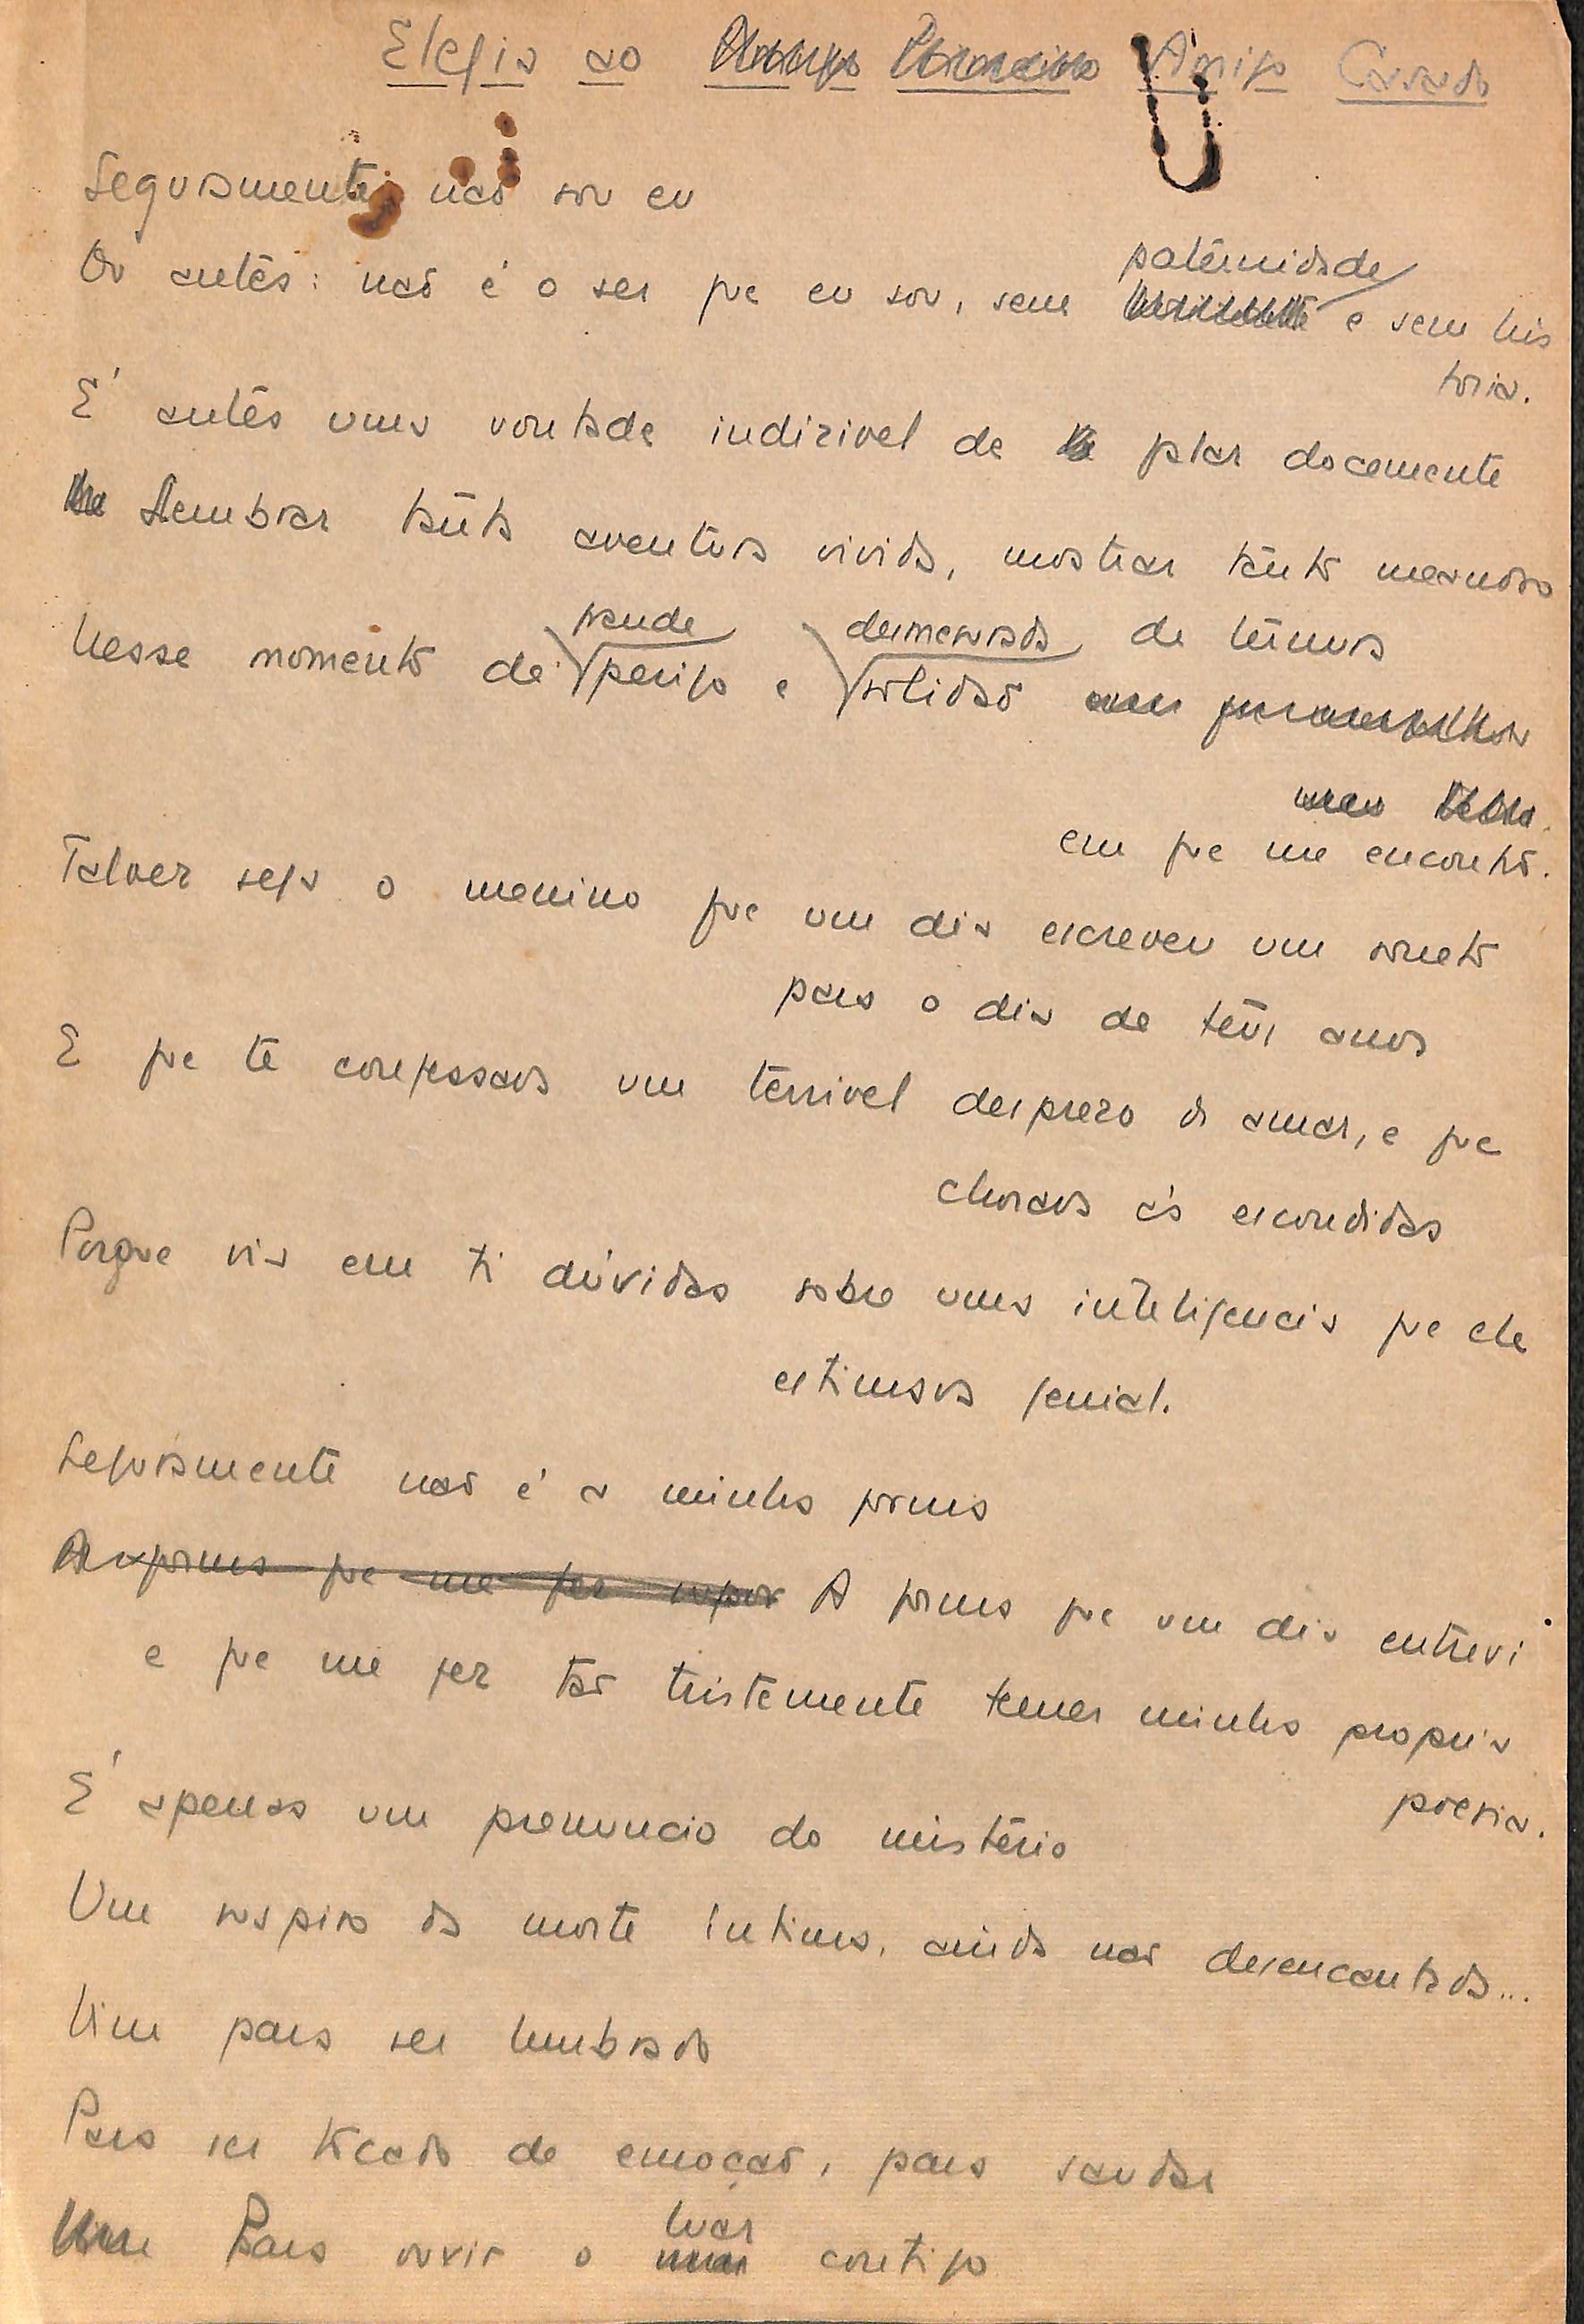 Elegia ao Amigo Casado
Seguramente, não sou eu
Ou antes: não é o ser que eu sou, sem paternidade e sem his
toria.
É antes uma vontade indizivel de falar docemente
Lembrar tanta aventura vivida, mostrar tanto meandro
de ternura
Nesse momento de grande perigo e desmesurada solidão
em que me encontro.
Talvez seja o menino que um dia escreveu um soneto
para o dia de teus anos
E que te confessava um terrivel desprezo de amar, e que
chorava às escondidas
Porque via em ti dúvidas sobre uma inteligencia que ele
estimava genial.
Seguramente não é a minha forma
A forma que me fez supor A forma que um dia entrevi
e que me fez tão tristemente temer minha propria
poesia.
É apenas um prenuncio do mistério
Um suspiro da morte intima, ainda não desencantada...
Vim para ser lembrado
Para ser tocado de emoção, para saudar
Para ouvir o luar contigo